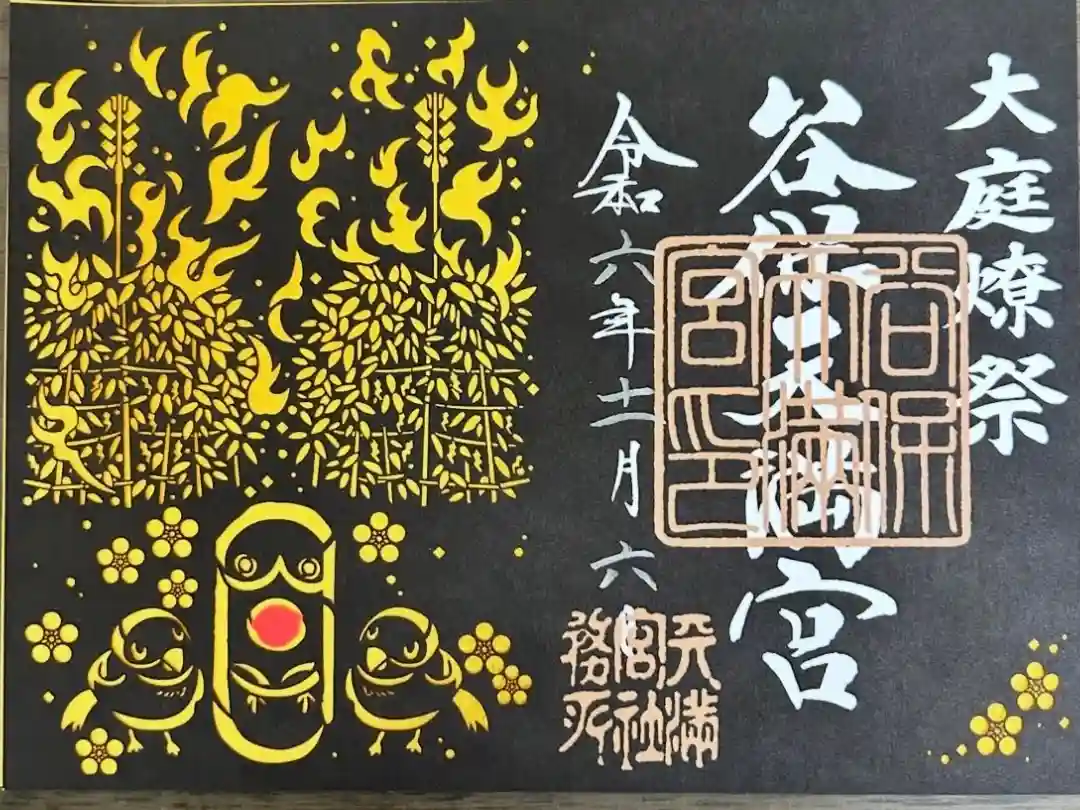 大庭燎祭
谷保天満宮
谷保
天満
宮印
令和六年十一月六日
天満
宮社
務所